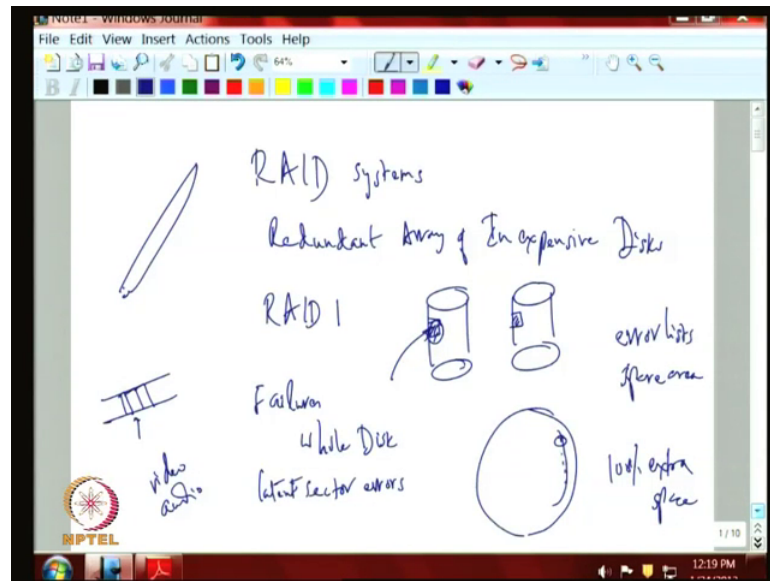 Note1 - Windows Journal
File Edit View Insert Actions Tools Help
64%
B I
RAID systems
Redundant Array of Inexpensive Disks
RAID 1
error lists
spare area
Failures
whole Disk
latent sector errors
video
audio
100% extra
space
NPTEL
1 / 10
12:19 PM